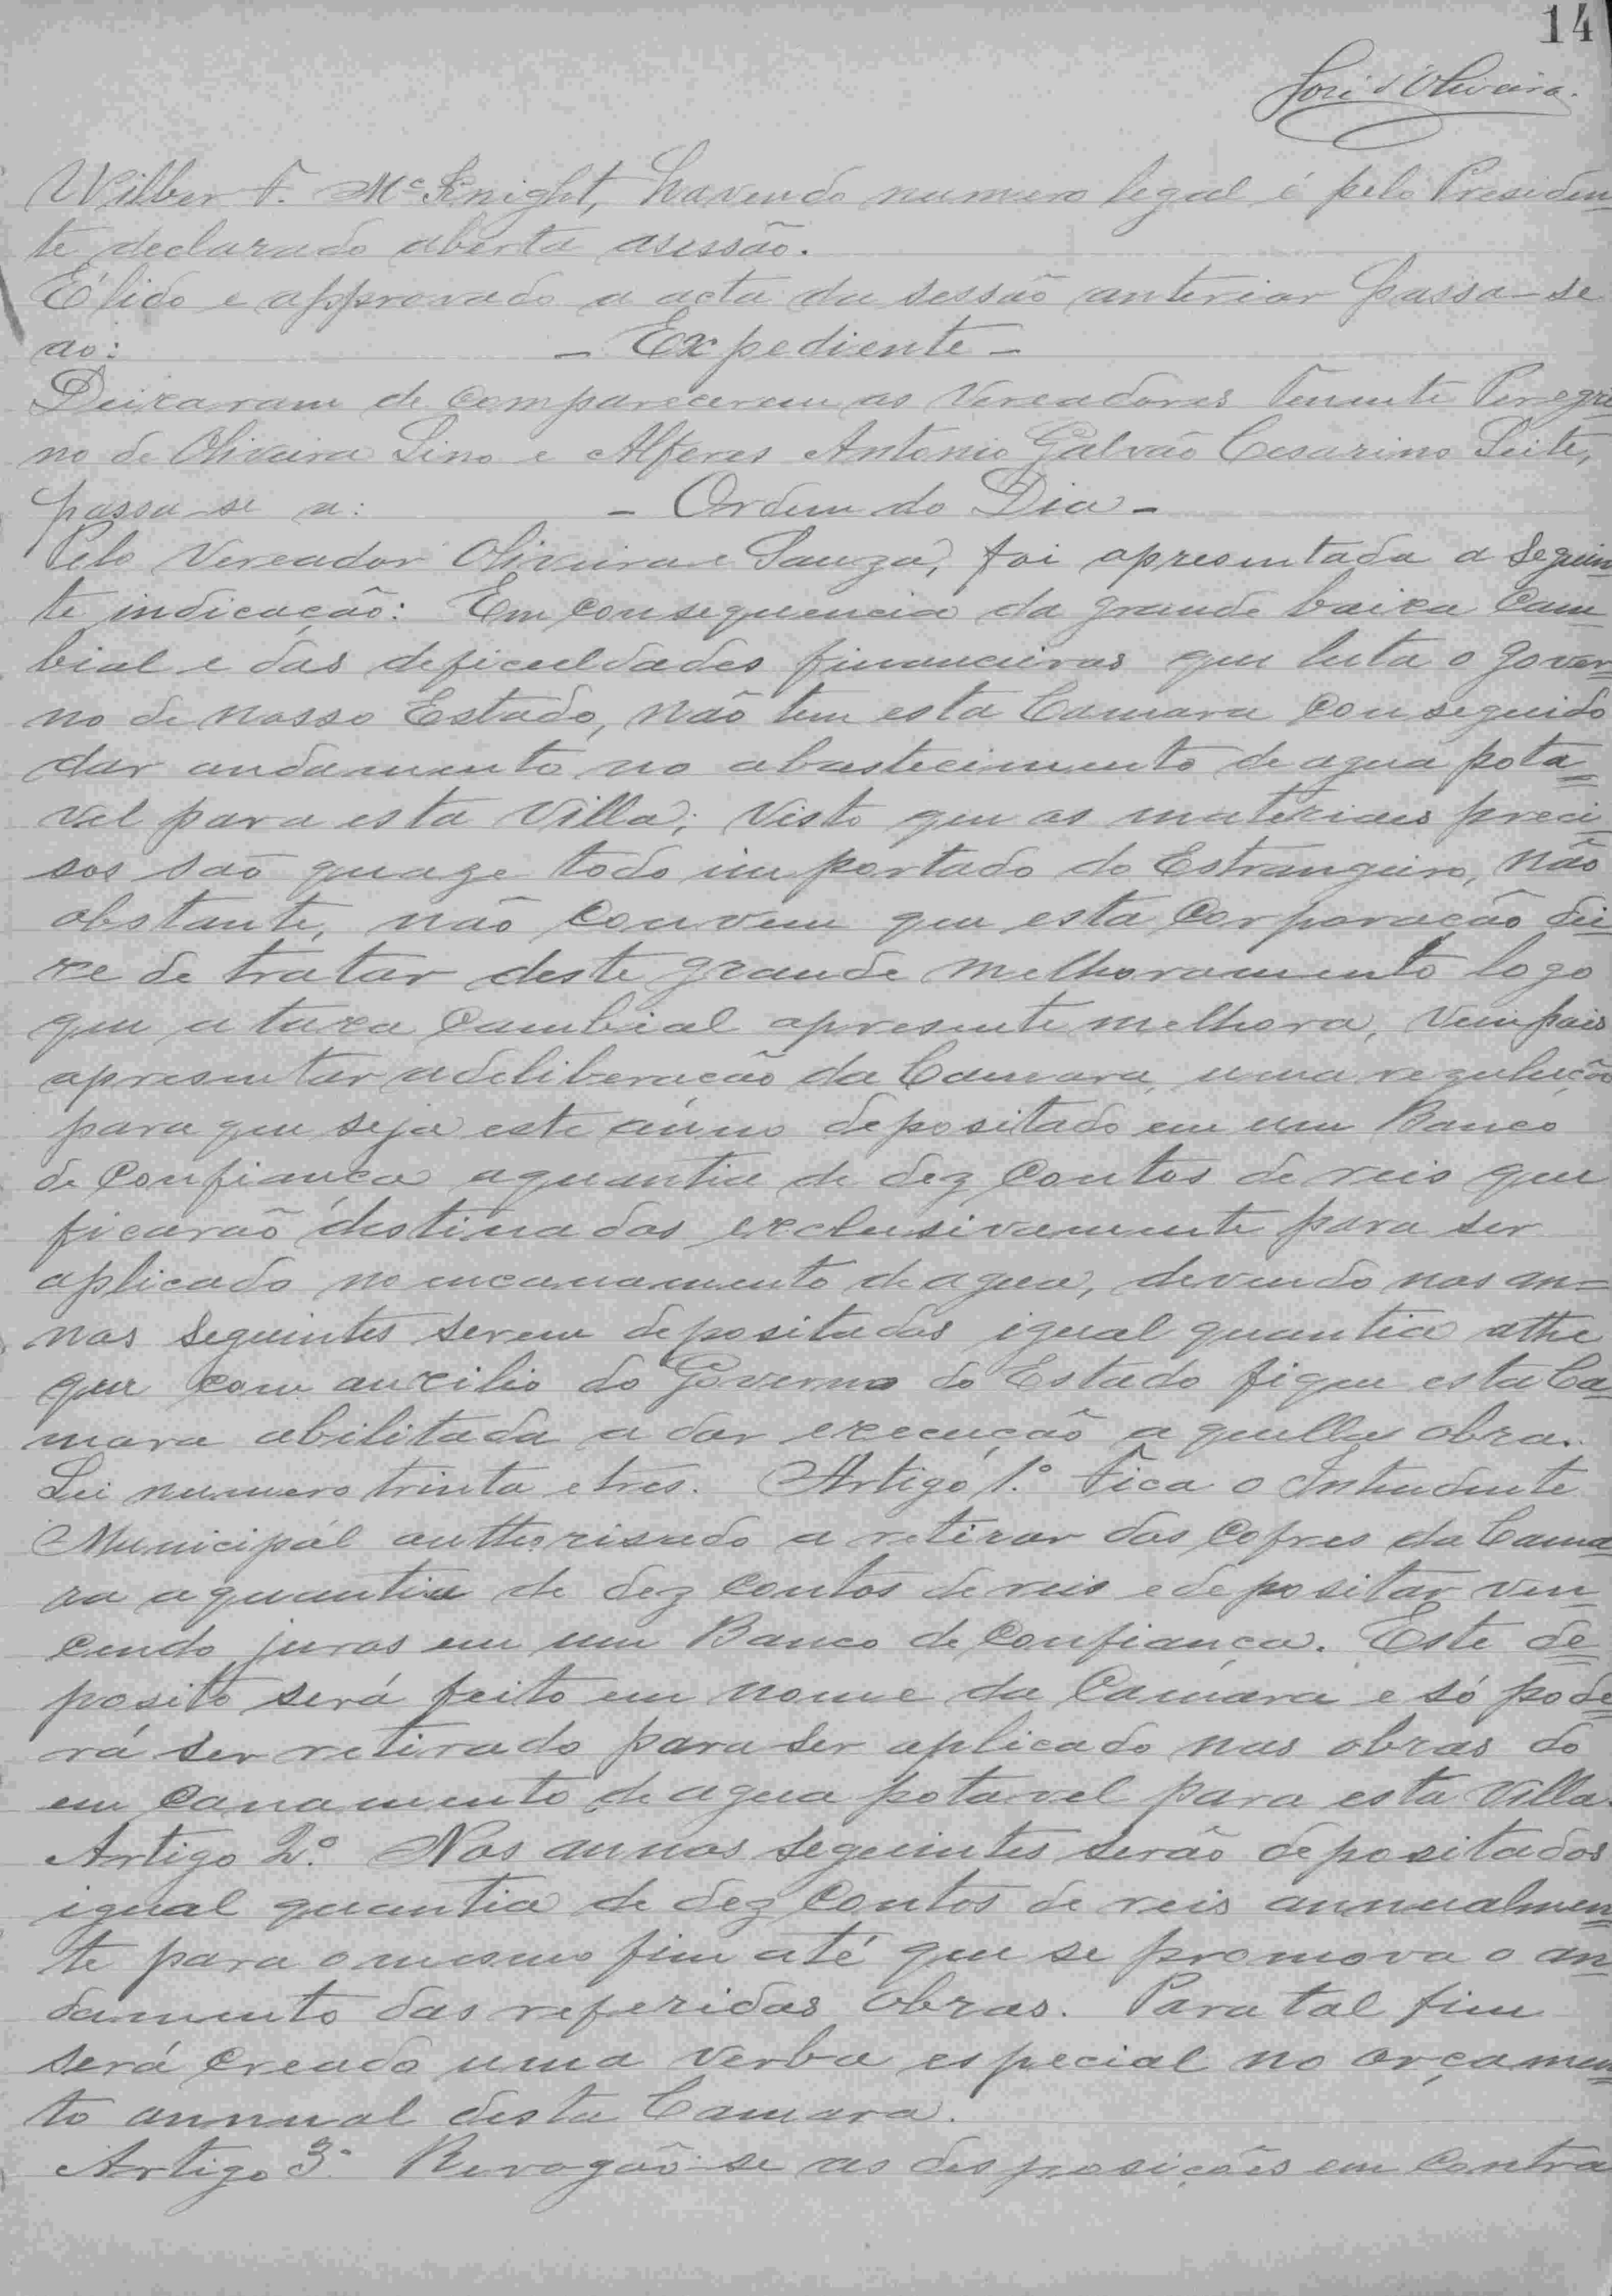 14
José d'Oliveira.
Wilber F. McKnight, havendo numero legal é pelo Presiden
te declarado aberta asessão.
É lido e approvado a acta da sessão anterior passa-se
ao: - Expediente -
Deixaram de comparecerem os Vereadores Tenente Peregri
no de Oliveira Lino e Alferes Antonio Galvão Cesarino Leite,
passa-se a: - Ordem do Dia -
Pelo Vereador Oliveira e Souza, foi apresentada a seguin
te indicação: Em consequencia da grande baixa cam
bial e das deficeuldades financeiras que luta o gover
no de nosso Estado, não tem esta Camara conseguido
dar andamento no abastecimento de agua pota=
vel para esta Villa; visto que os materiaes preci
sos são quaze todo importado do Estrangeiro, não
obstante, não convem que esta Corporação dei
xe de tratar deste grande melhoramento logo
que a taxa cambial apresente melhora, vem pois
apresentar a deliberação da Camara, uma rezulução
para que seja este anno depositado em um Banco
de Confiança aquantia de dez contos de reis que
ficarão destinados exclusivamente para ser
aplicado no encanamento de agua, devendo nos an=
nos seguintes serem depositados igual quantia athe
que com auxilio do Governo do Estado fique esta Ca
mara abilitada a dar execução aquella obra.
Lei numero trinta e tres. Artigo 1.º Fica o Intendente
Municipál authorisado a retirar dos cofres da Cama
ra aquantia de dez contos de reis e depositar ven
cendo juros em um Banco de Confiança. Este de
posito será feito em nome da Camara e só pode
rá ser retirado para ser aplicado nas obras do
em canamento de agua potavel para esta Villa.
Artigo 2.º Nos annos seguintes serão depositados
igual quantia de dez contos de reis annualmen
te para o mesmo fim até que se promova o an
damento das referidas obras. Para tal fim
será creado uma verba especial no orçamen
to annual desta Camara.
Artigo 3.º Revogão-se as desposições em contra